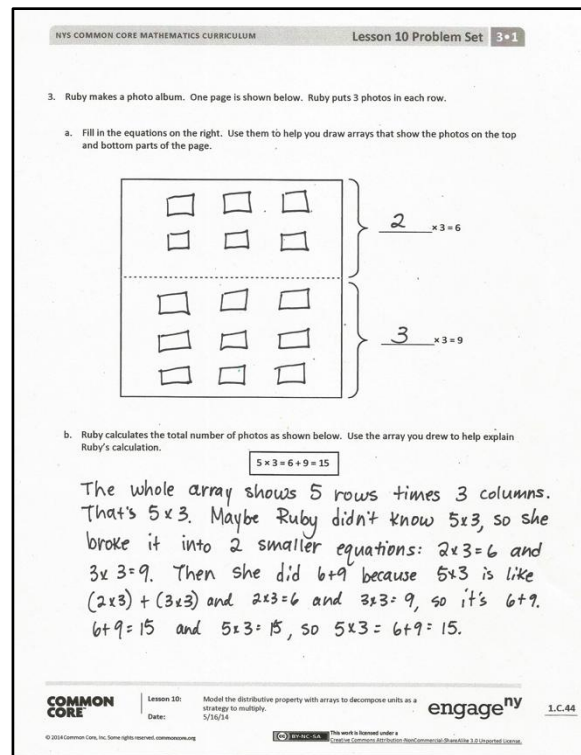 NYS COMMON CORE MATHEMATICS CURRICULUM
Lesson 10 Problem Set 3•1
3. Ruby makes a photo album. One page is shown below. Ruby puts 3 photos in each row.
a. Fill in the equations on the right. Use them to help you draw arrays that show the photos on the top
and bottom parts of the page.
2 × 3 = 6
3 × 3 = 9
b. Ruby calculates the total number of photos as shown below. Use the array you drew to help explain
Ruby's calculation.
5 × 3 = 6 + 9 = 15
The whole array shows 5 rows times 3 columns.
That's 5x3. Maybe Ruby didn't know 5x3, so she
broke it into 2 smaller equations: 2x3=6 and
3x 3=9. Then she did 6+9 because 5x3 is like
(2x3) + (3x3) and 2x3=6 and 3x3= 9, so it's 6+9.
6+9=15 and 5x3= 15, so 5x3 = 6+9= 15.
COMMON
CORE
Lesson 10: Model the distributive property with arrays to decompose units as a
strategy to multiply.
Date: 5/16/14
engage ny
1.C.44
© 2014 Common Core, Inc. Some rights reserved. commoncore.org
CC BY-NC-SA
This work is licensed under a
Creative Commons Attribution-NonCommercial-ShareAlike 3.0 Unported License.